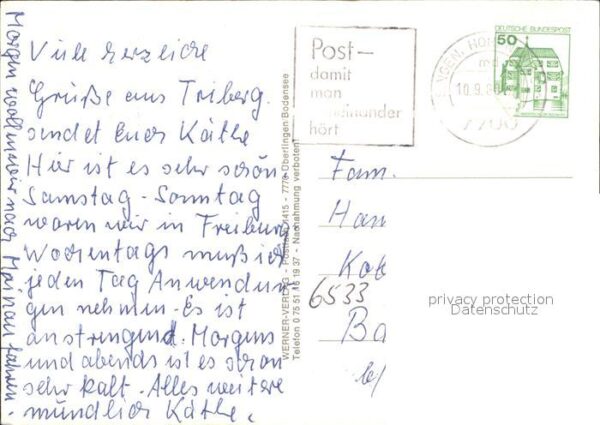 Viele herzliche
Grüße aus Triberg.
sendet Euch Käthe
Hier ist es sehr schön
Samstag - Sonntag
waren wir in Freiburg
Wochentags muß ich
jeden Tag Anwendun
gen nehmen. Es ist
anstrengend. Morgens
und abends ist es schon
sehr kalt. Alles weitere
mündlich Käthe.
Morgen wollen wir nach Mainau fahren.
WERNER-VERLAG - Postfach 1415 - 7770 Überlingen/Bodensee
Telefon 0 75 51 / 6 19 37 - Nachahmung verboten!
Post-
damit
man
einander
hört
10.9.80
DEUTSCHE BUNDESPOST
50
Fam.
Han
Kob
6533
Ba
privacy protection
Datenschutz